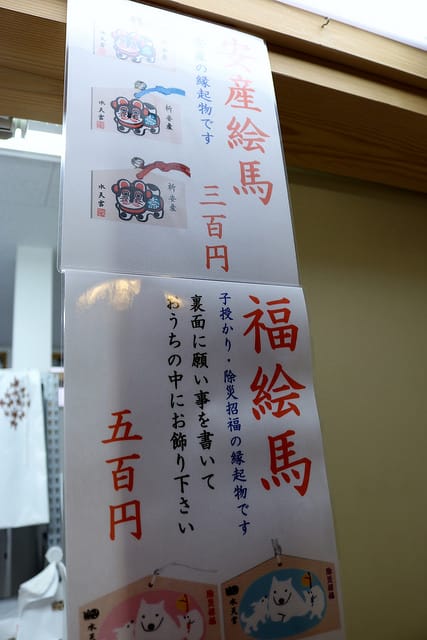 安産絵馬
の縁起物です
三百円
祈安産
水天宮
祈安産
水天宮
福絵馬
子授かり・除災招福の縁起物です
裏面に願い事を書いて
おうちの中にお飾り下さい
五百円
除災招福
水天宮
除災招福
水天宮